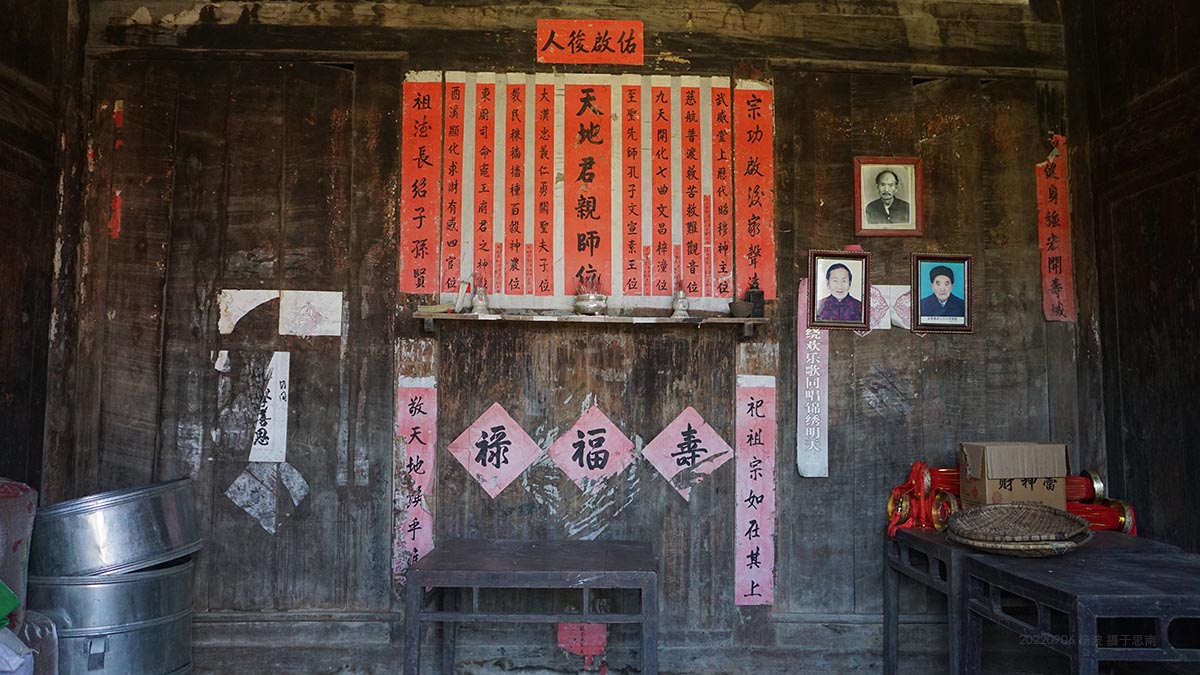 佑啟後人
宗功啟後家聲遠
武威堂上歷代昭穆神主位
慈航普渡救苦救難觀音位
九天開化七曲文昌梓潼位
至聖先師孔子文宣王位
天地君親師位
大漢忠義仁勇關聖夫子位
教民稼穡播種百穀神農位
東廚司命竈王府君之神位
酉溪顯化求財有感四官位
祖德長紹子孫賢
健身強宏開壽域
敬天地
乎
祀祖宗如在其上
祿
福
壽
绕欢乐歌同唱锦绣明天
善思
財神
20220906 杨波 摄于思南